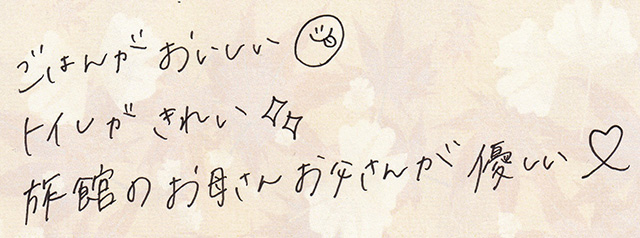 ごはんがおいしい
トイレがきれい
旅館のお母さんお父さんが優しい